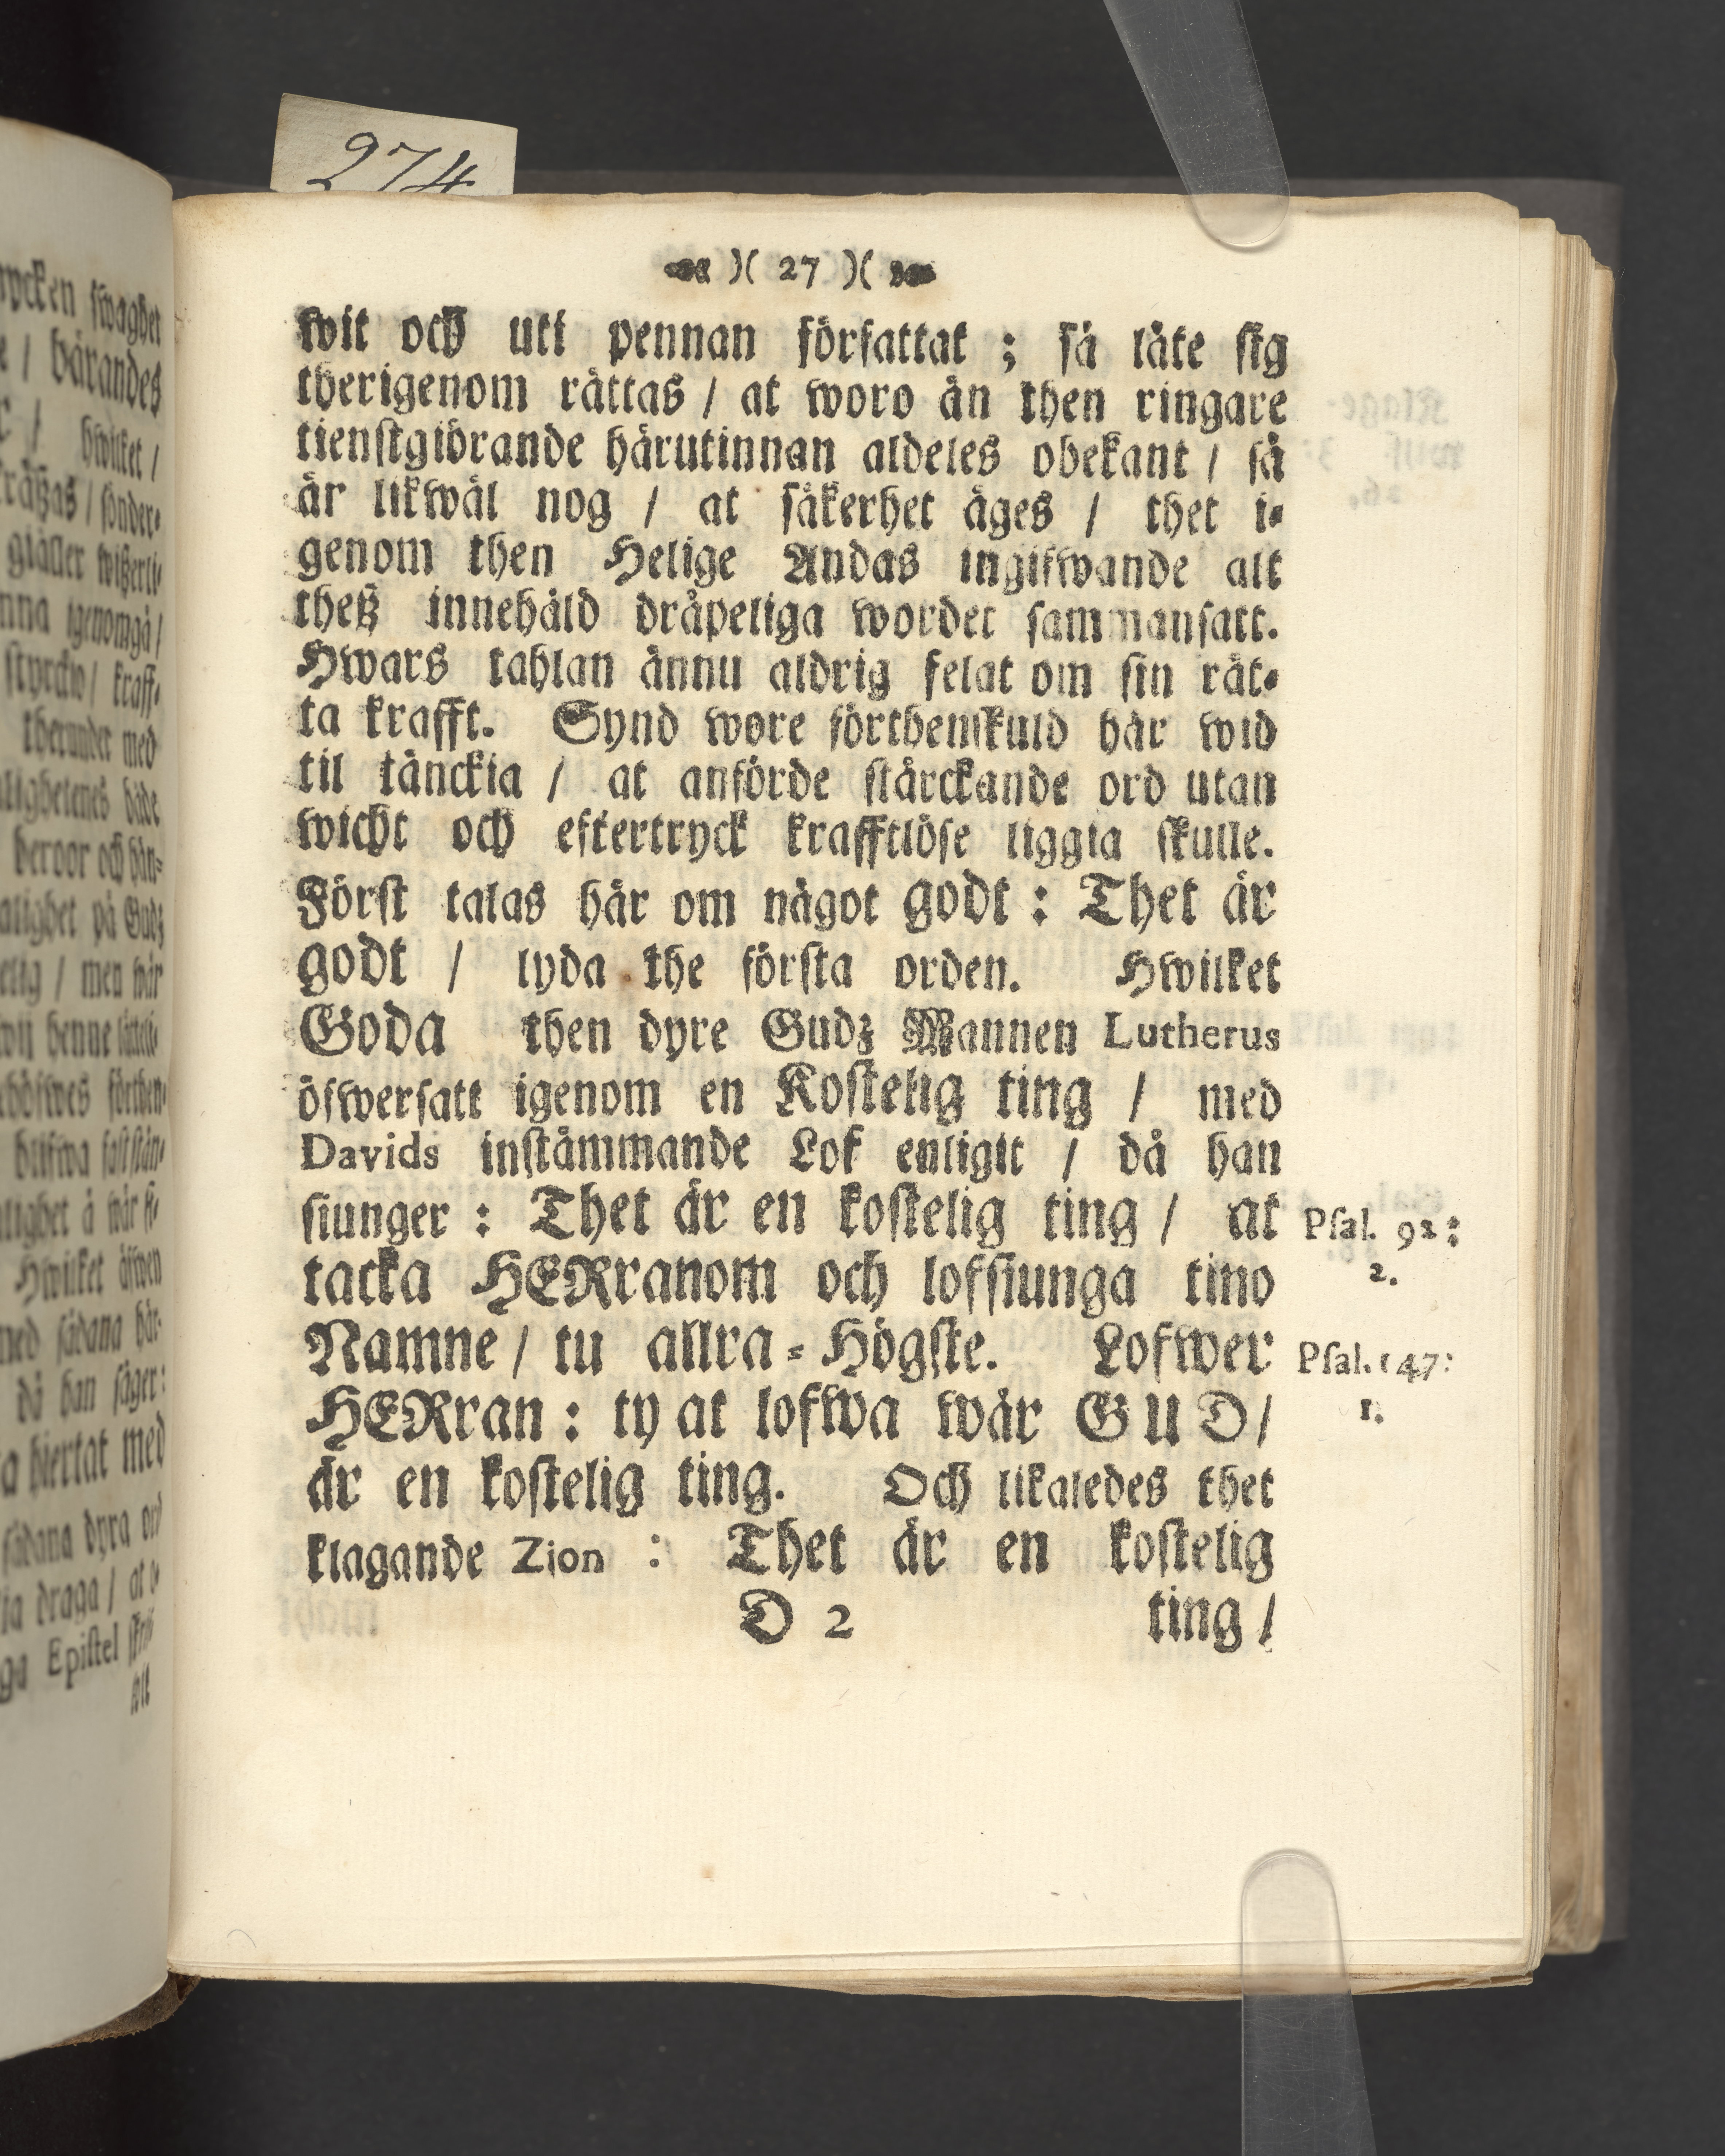 274
)( 27 )(
wit och uti pennan författat ; så låte sig
therigenom rättas / at woro än then ringare
tienstgiörande härutinnan aldeles obekant / så
är likwäl nog / at säkerhet äges / thet i-
genom then Helige Andas ingifwande alt
theß innehåld dråpeliga wordet sammansatt.
Hwars tahlan ännu aldrig felat om sin rät-
ta krafft. Synd wore förthenskuld här wid
til tänckia / at anförde stärckande ord utan
wicht och eftertryck krafftlöse liggia skulle.
Först talas här om något godt : Thet är
godt / lyda the första orden. Hwilket
Goda then dyre Gudz Mannen Lutherus
öfwersatt igenom en Kostelig ting / med
Davids instämmande Lof enligit / då han
siunger : Thet är en kostelig ting / at Psal. 92:
2.
tacka HERranom och lofsiunga tino
Namne / tu allra-Högste. Lofwer Psal. 147:
1.
HERran : ty at lofwa wår GUD /
är en kostelig ting. Och likaledes thet
klagande Zion : Thet är en kostelig
D 2 ting /